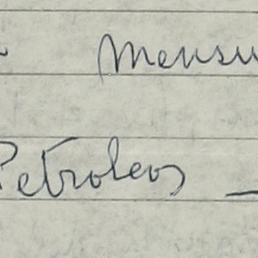 mensu
Petroleos